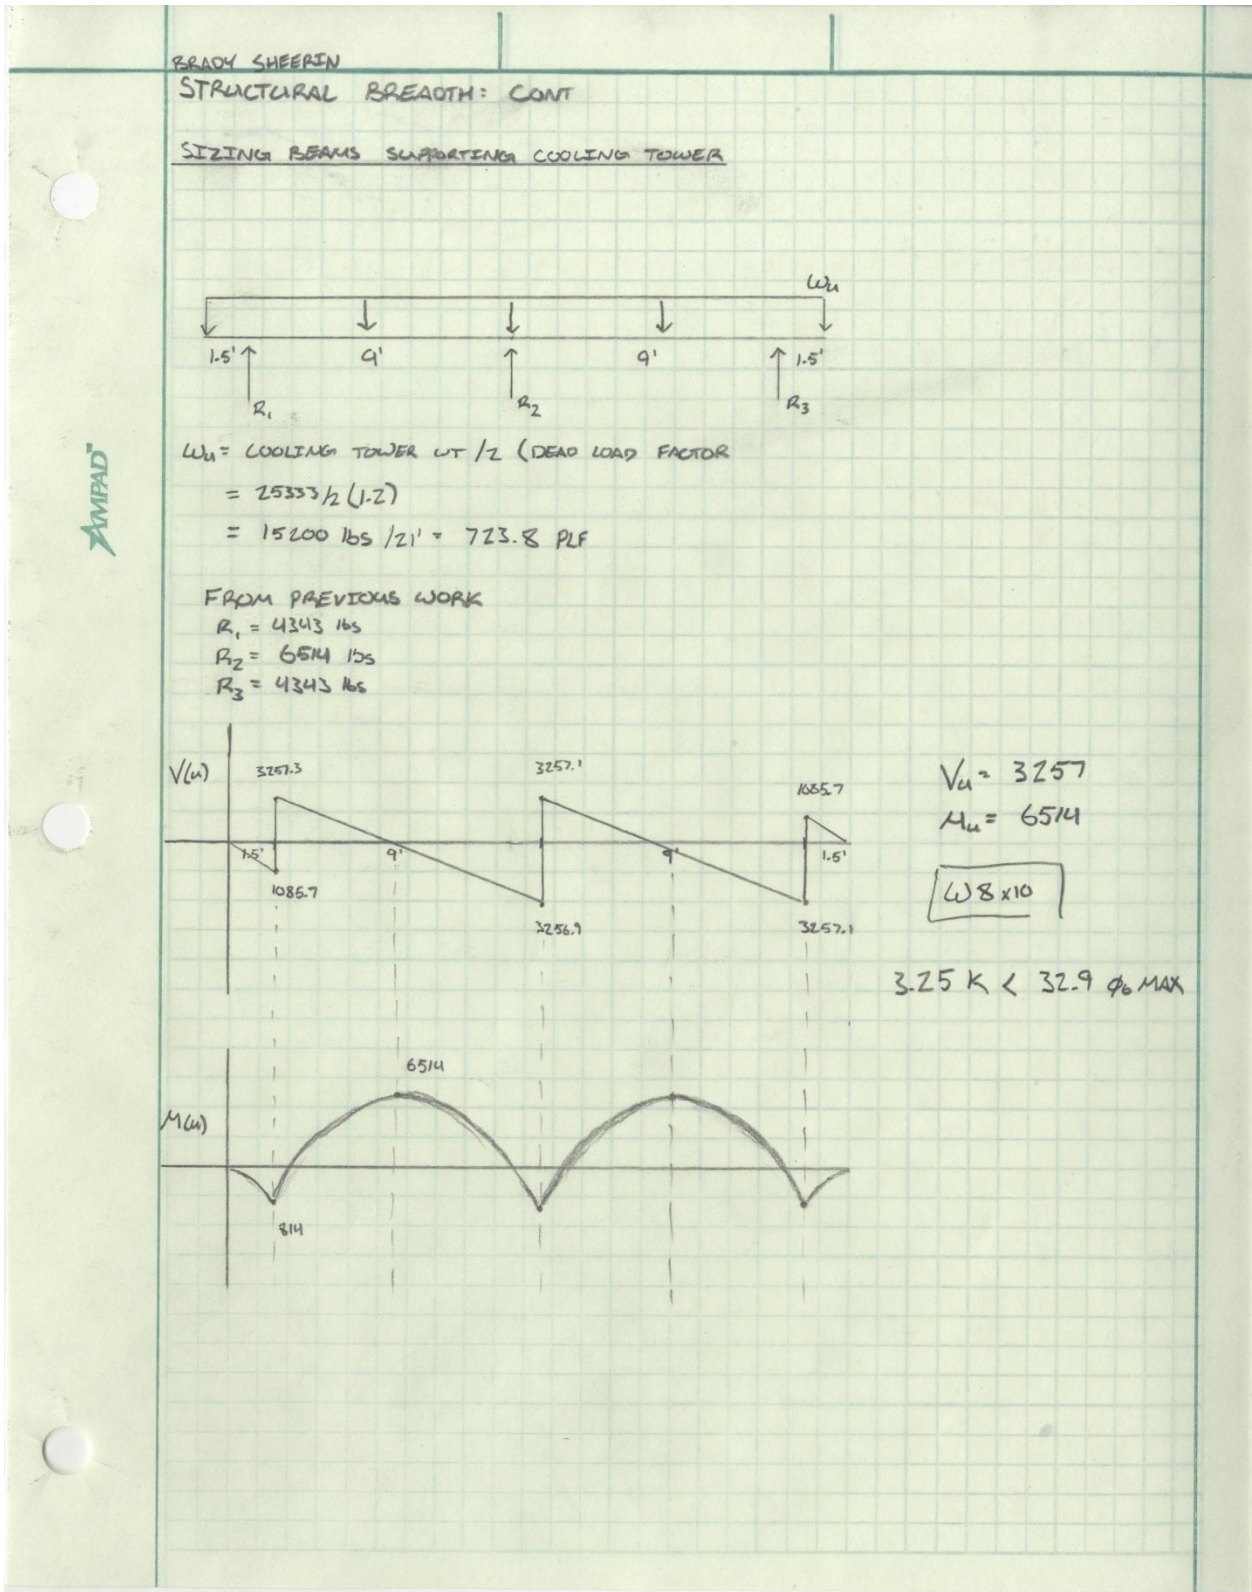 BRADY SHEERIN
STRUCTURAL BREADTH: CONT
SIZING BEAMS SUPPORTING COOLING TOWER
Wu
1.5' 9' 9' 1.5'
R1 R2 R3
Wu = COOLING TOWER WT /2 (DEAD LOAD FACTOR
= 25333/2 (1.2)
= 15200 lbs /21' = 723.8 PLF
AMPAD™
FROM PREVIOUS WORK
R1 = 4343 lbs
R2 = 6514 lbs
R3 = 4343 lbs
V(u) 3257.3 3257.1 1085.7
1.5' 9' 9' 1.5'
1085.7 3256.9 3257.1
Vu = 3257
Mu = 6514
W8x10
3.25 K < 32.9 φb MAX
6514
M(u)
814